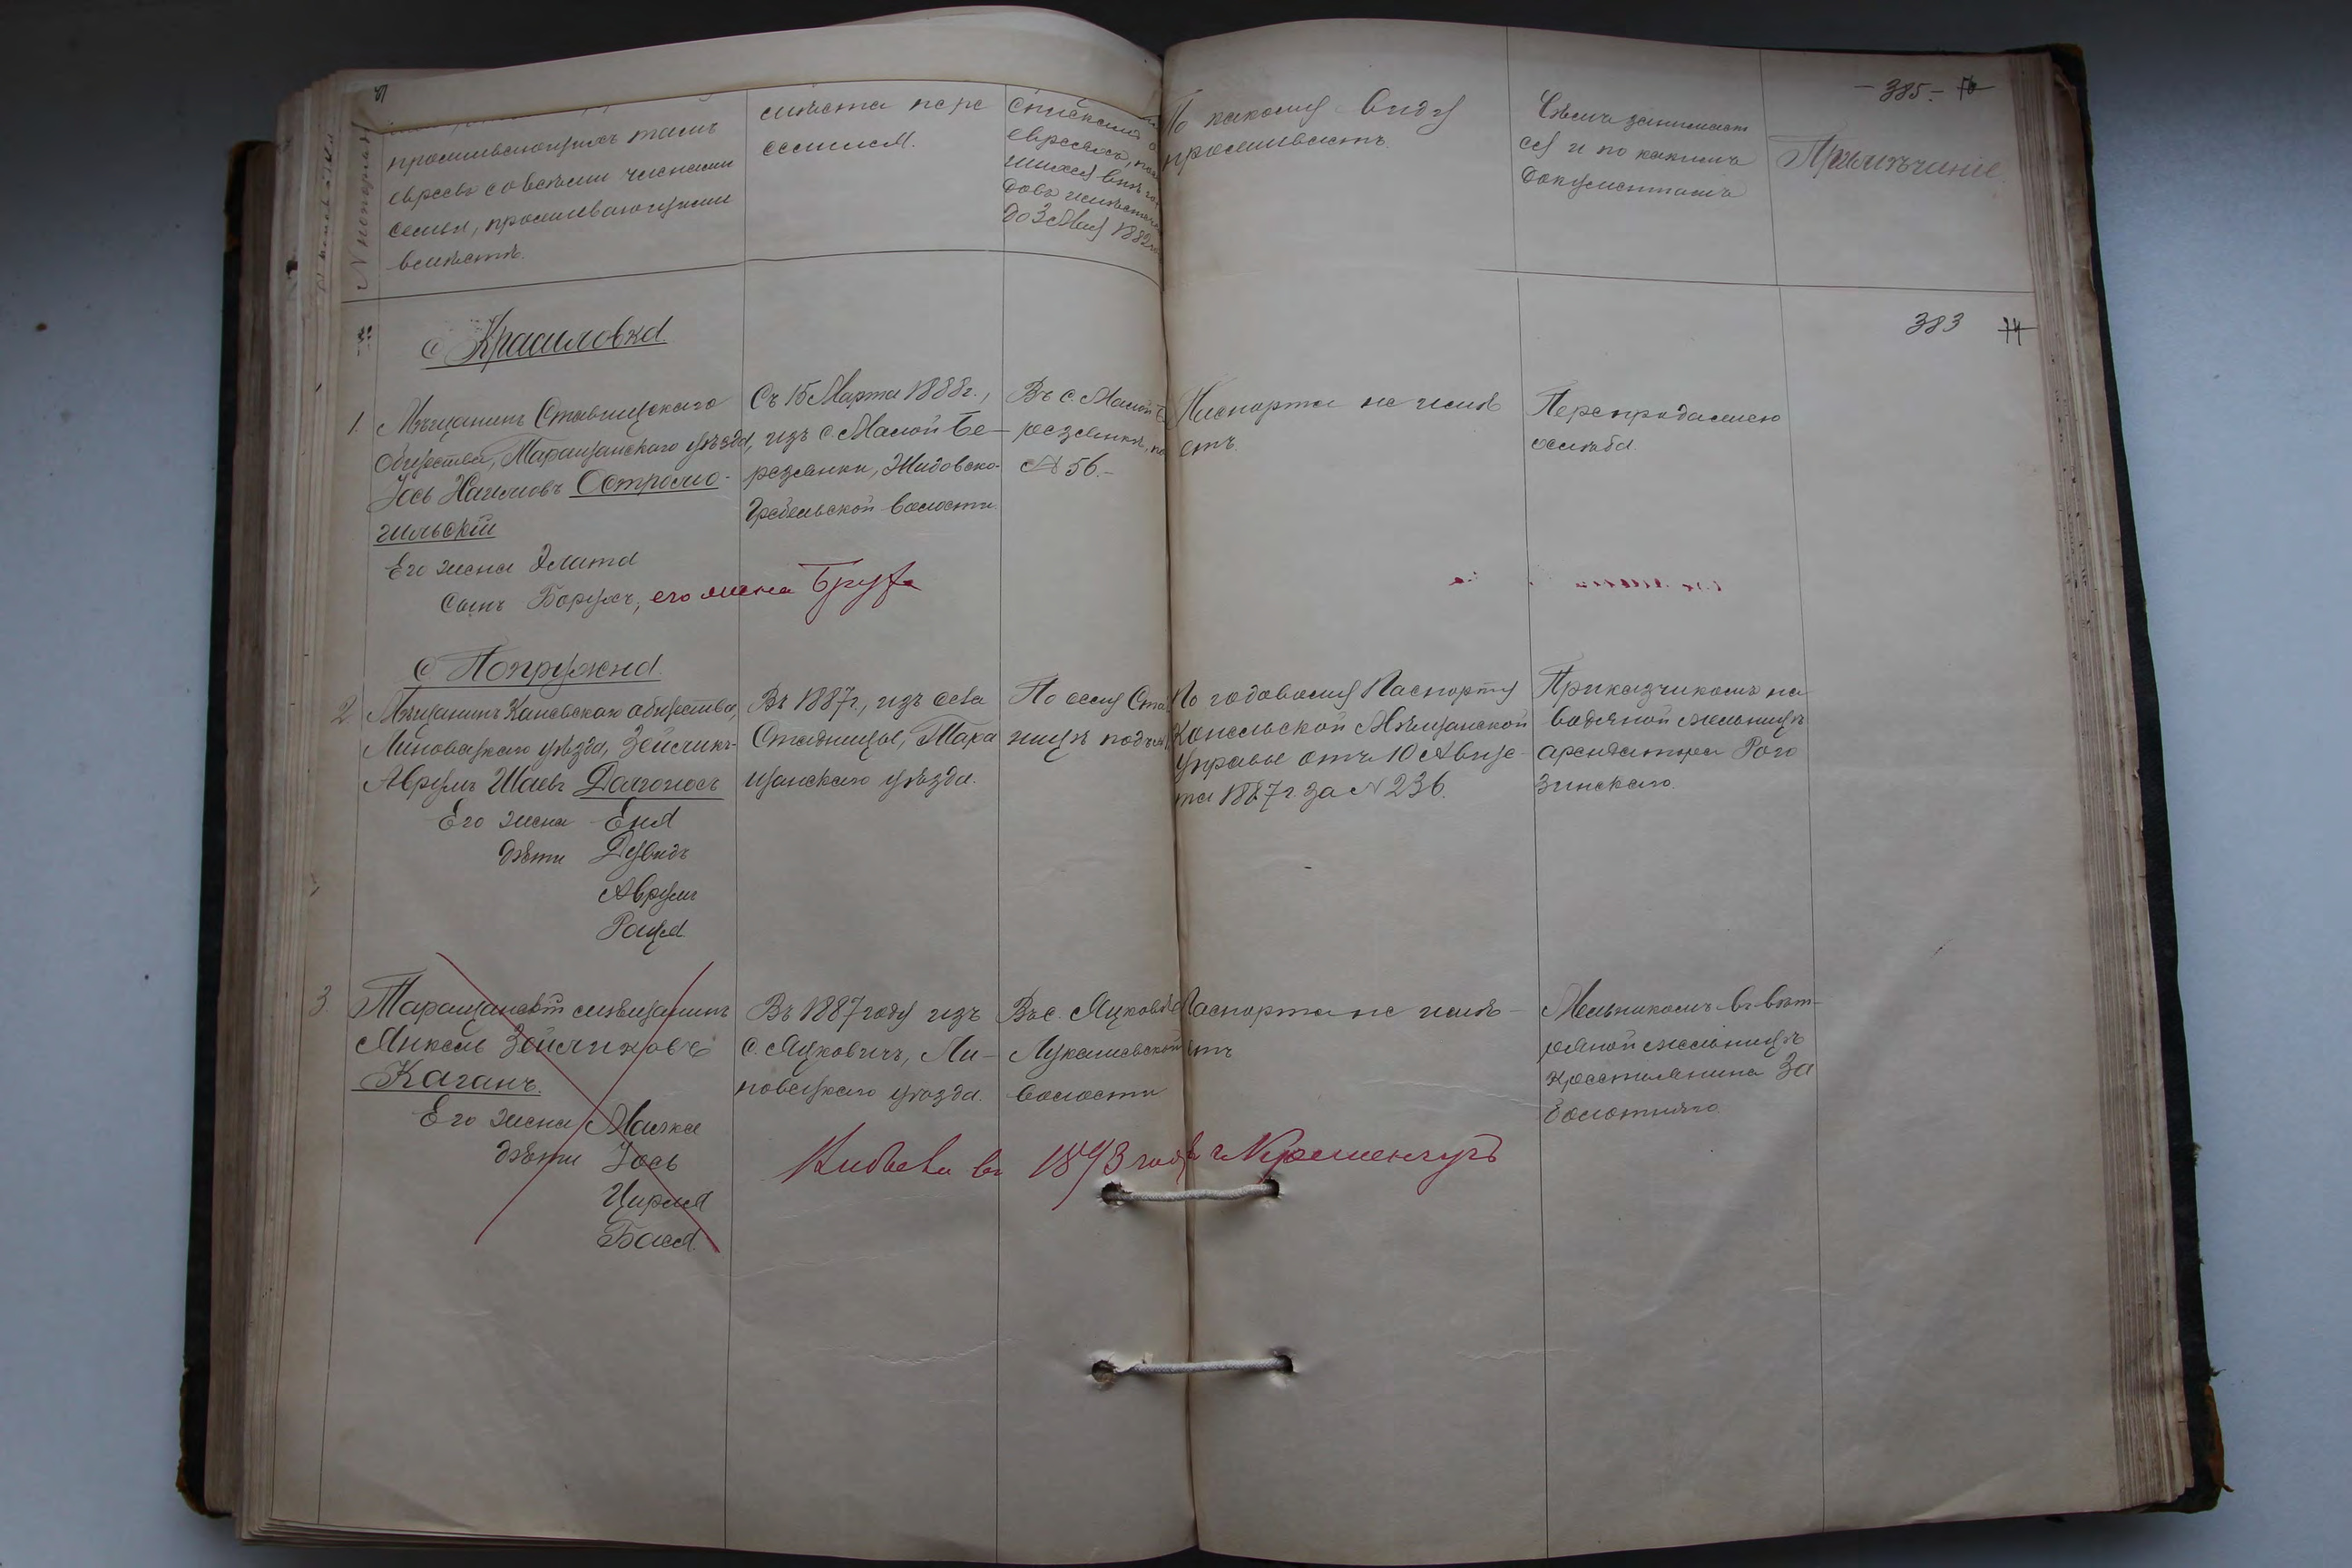 № попорядку
проживающихъ тамъ
евреевъ со всѣми членами
семьи, проживающими
вмѣстѣ.
мѣста пере
селился.
спискамъ о
евреяхъ,
шихся внѣ го
довъ и мѣстечекъ
до 3 Мая 1882 г.
По какому виду
проживаетъ.
Чѣмъ занимает
ся и по какимъ
документамъ
Примѣчаніе.
- 385 -
383
с Красиловка
1. Мѣщанинъ Ставищскаго
общества, Таращанскаго уѣзда,
Іось Нахимовъ Остромо-
гильскій
Его жена Злата
Сынъ Борухъ, его жена Бруха
Съ 15 Марта 1888 г.,
изъ с. Малой Бе-
резянки, Жидовско-
Гребельской волости.
Въ с. Малой Бе
резянкѣ, по
№ 56.-
Паспорта не имѣ
етъ.
Перепродажею
хлѣба.
с Попружна.
2. Мѣщанинъ Каневскаго общества,
Липовецкаго уѣзда, Зейликъ-
Аврумъ Шаевъ Долгоносъ
Его жена Еня
дѣти Дувидъ
Аврумъ
Роця
Въ 1887 г., изъ села
Стадницы, Тара
щанскаго уѣзда.
По селу Стад
ницѣ подъ №
По годовому Паспорту
Мѣщанской
Управы отъ 10 Авгус-
та 1887 г. за № 236.
Приказчикомъ на
водяной мельницѣ
арендатора Рого
зинскаго.
3. Таращанскій мѣщанинъ
Янкель Зейликовъ
Каганъ.
Его жена Малка
дѣти Іось
Цирля
Бася.
Въ 1887 году изъ
с. Яцковичъ, Ли-
повецкаго уѣзда.
Въ с. Яцкови
Лукашевской
волости
Паспорта не имѣ-
етъ
Мельникомъ въ вѣт-
ряной мельницѣ
крестьянина За
болотняго.
въ 1893 году г Кременчугъ